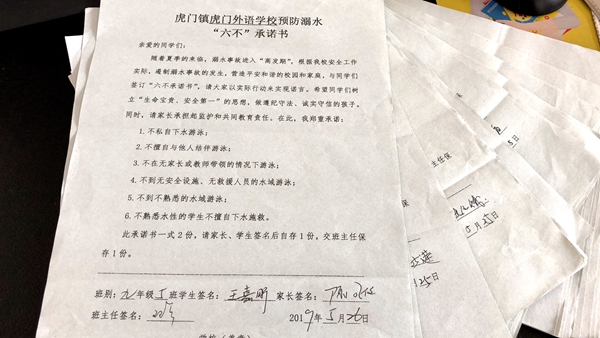 虎门镇虎门外语学校预防溺水
“六不”承诺书
亲爱的同学们：
随着夏季的来临，溺水事故进入“高发期”，根据我校安全工作
实际，遏制溺水事故的发生，营造平安和谐的校园和家庭，与同学们
签订“六不承诺书”，请大家以实际行动来实现诺言。希望同学们树
立“生命宝贵、安全第一”的思想，做遵纪守法、诚实守信的孩子。
同时，请家长承担起监护和共同教育责任。在此，我郑重承诺：
1.不私自下水游泳；
2.不擅自与他人结伴游泳；
3.不在无家长或教师带领的情况下游泳；
4.不到无安全设施、无救援人员的水域游泳；
5.不到不熟悉的水域游泳；
6.不熟悉水性的学生不擅自下水施救。
此承诺书一式2份，请家长、学生签名后自存1份，交班主任保
存1份。
班别：九年级 班学生签名：王嘉明 家长签名：
班主任签名： 2019年5月26日
主任保
5日
5月25日
125日